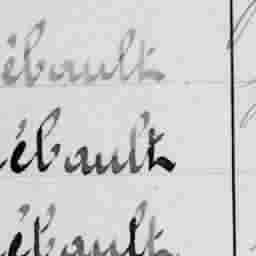 ébault
ébault
ébault